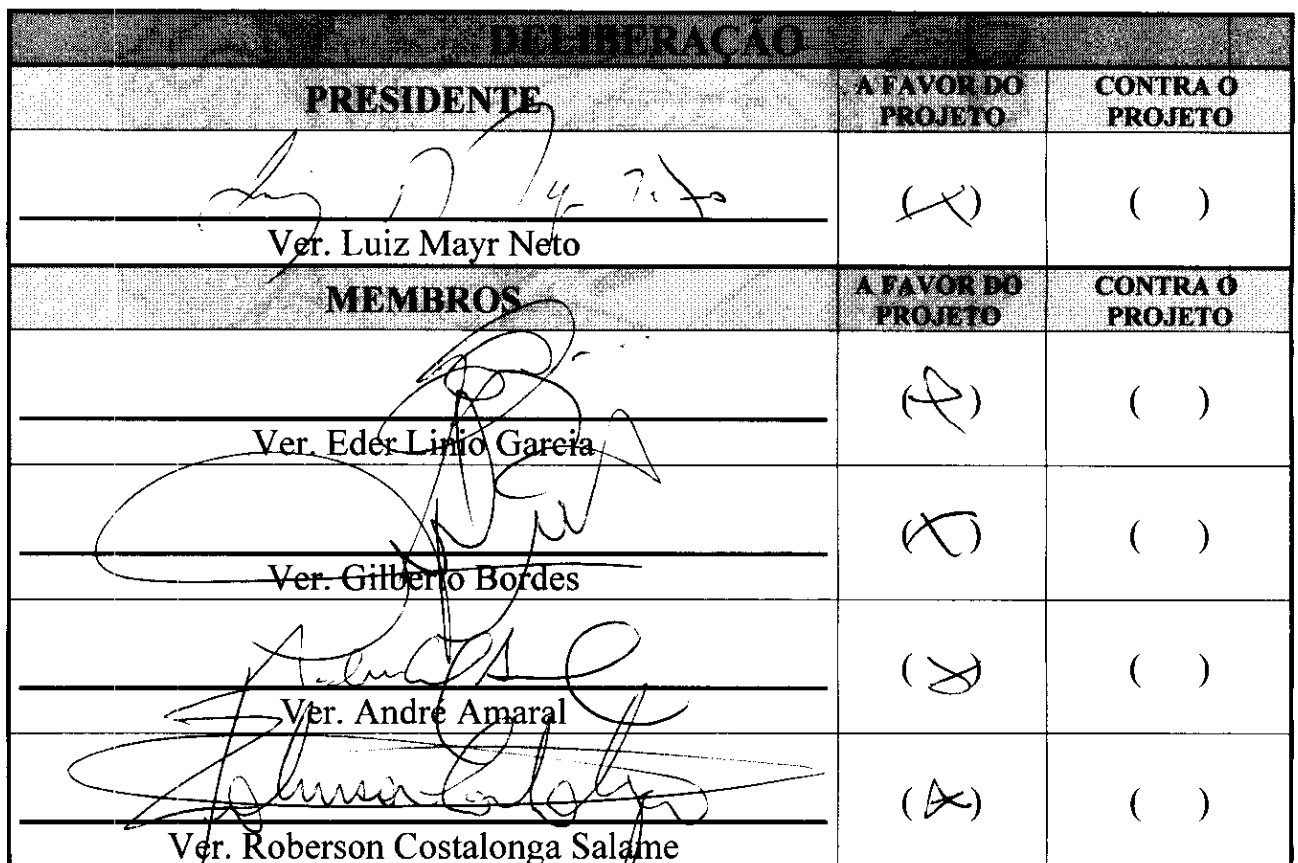 DELIBERAÇÃO
PRESIDENTE
A FAVOR DO PROJETO
CONTRA O PROJETO
Ver. Luiz Mayr Neto
(X)
( )
MEMBROS
A FAVOR DO PROJETO
CONTRA O PROJETO
Ver. Eder Linio Garcia
(X)
( )
Ver. Gilberto Bordes
(X)
( )
Ver. André Amaral
(X)
( )
Ver. Roberson Costalonga Salame
(X)
( )